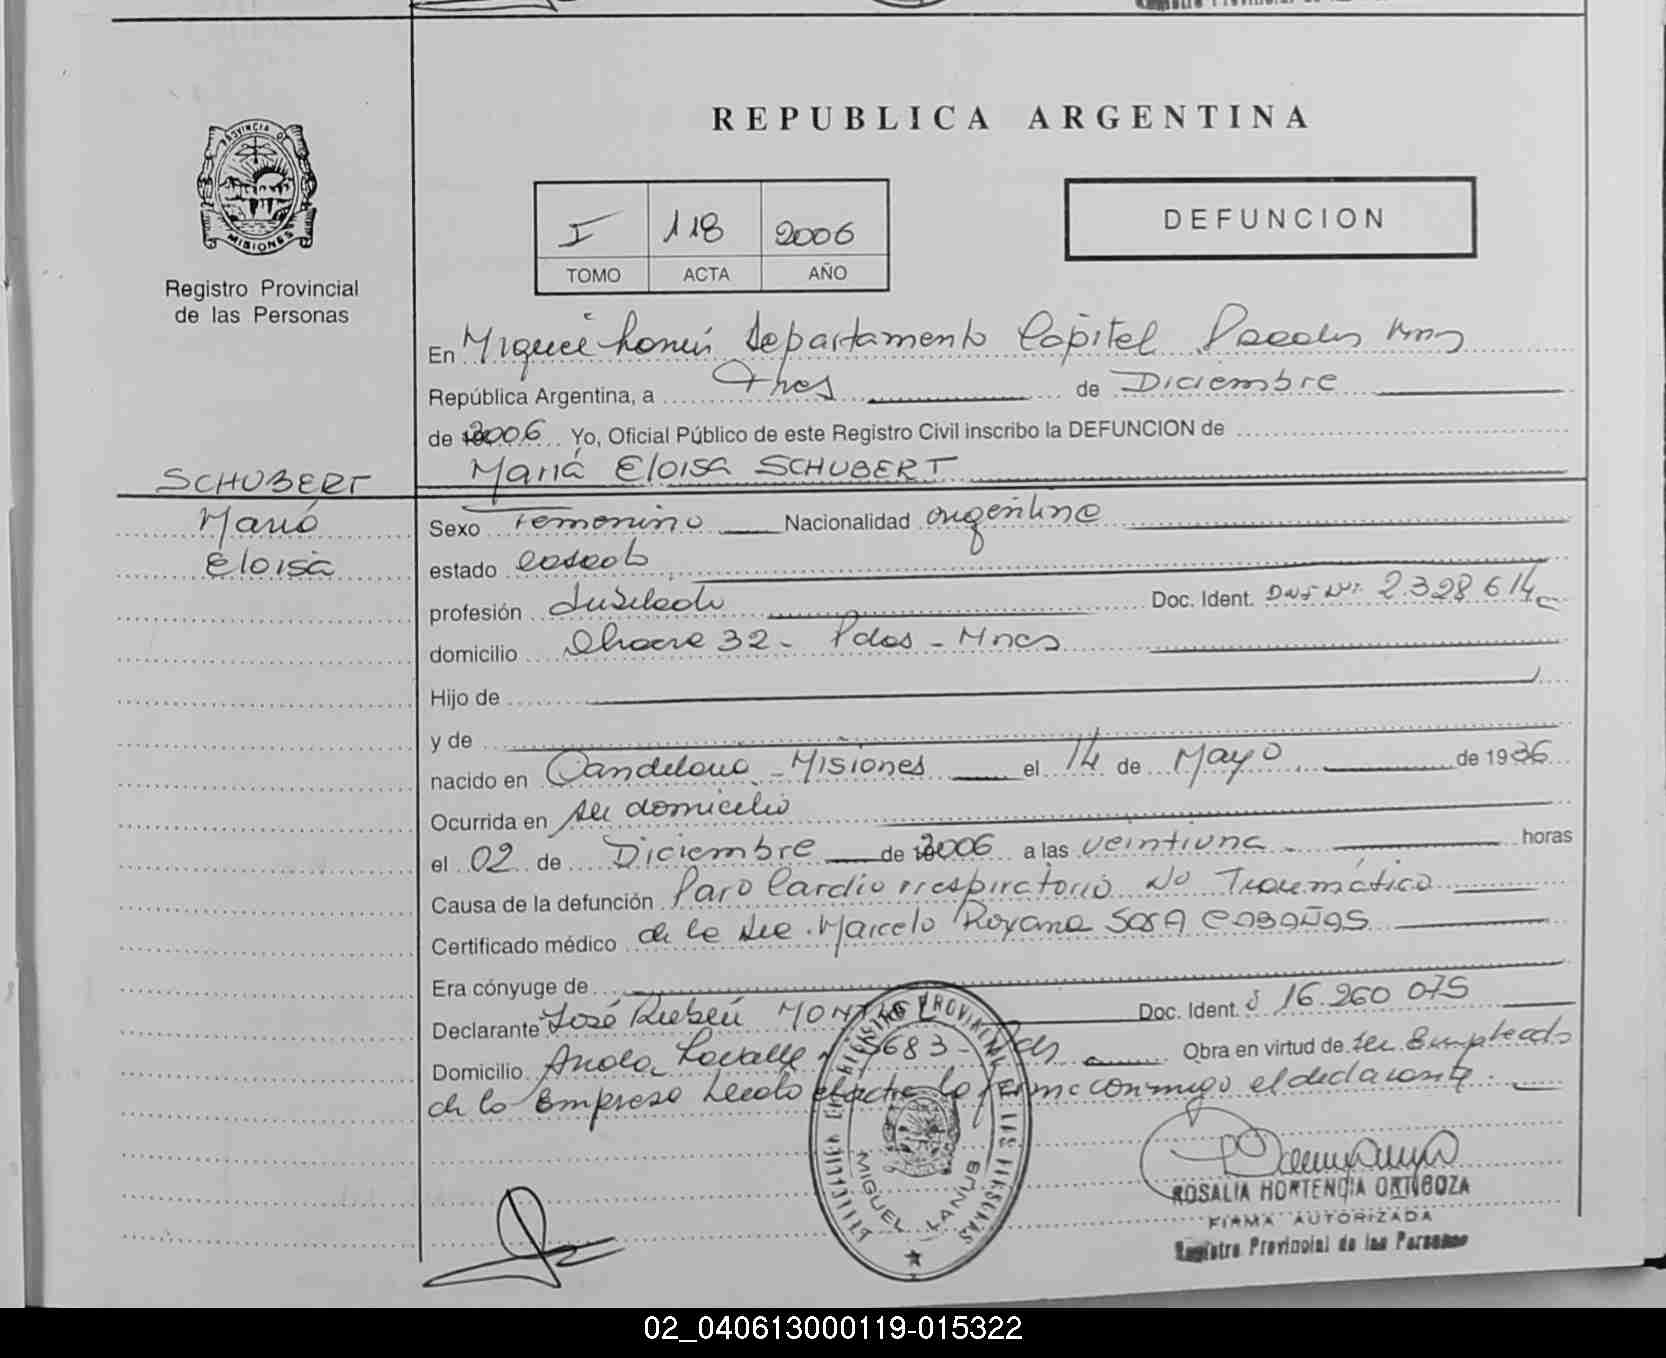 PROVINCIA DE
MISIONES
Registro Provincial
de las Personas
REPUBLICA ARGENTINA
I 118 2006
TOMO ACTA AÑO
DEFUNCION
En Miguel Lanús Departamento Capital Posadas Mnes
República Argentina, a Tres de Diciembre
de 2006 Yo, Oficial Público de este Registro Civil inscribo la DEFUNCION de
María Eloisa SCHUBERT
SCHUBERT
María
Eloisa
Sexo Femenino Nacionalidad argentina
estado casada
profesión Jubilada Doc. Ident. DNI Nº 2.328.614
domicilio Chacra 32 - Pdas - Mnes
Hijo de
y de
nacido en Candelaria - Misiones el 14 de Mayo de 1936
Ocurrida en su domicilio
el 02 de Diciembre de 2006 a las veintiuna horas
Causa de la defunción Paro Cardio rrespiratorio No Traumático
Certificado médico de la Dra. Marcela Roxana SOSA CABAÑAS
Era cónyuge de
Declarante José Rubén Doc. Ident. 16.260 075
Domicilio Lavalle 5683 - Pds Obra en virtud de ser Empleado
de la Empresa firma conmigo el declarante.
MIGUEL LANUS
ROSALIA HORTENCIA ORTIGOZA
FIRMA AUTORIZADA
Registro Provincial de las Personas
02_040613000119-015322